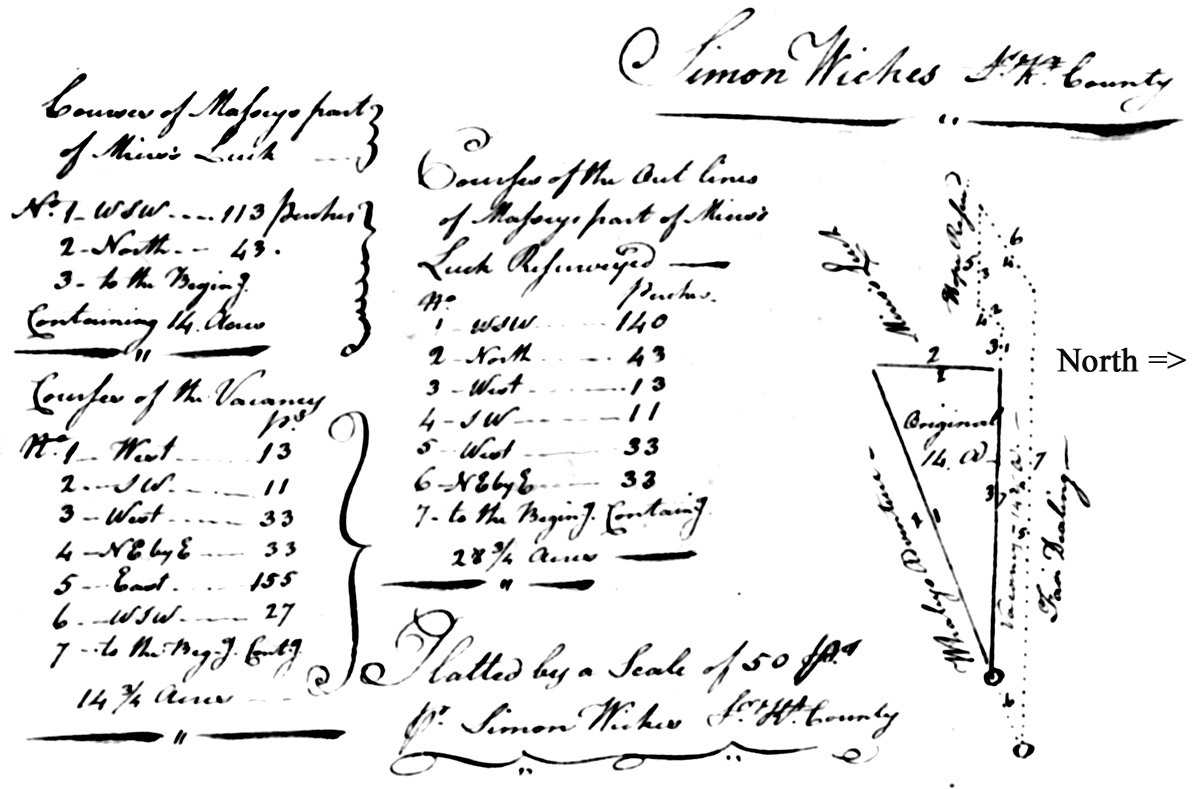 Simon Wickes Sr. Kt. County
Courses of Masseys part
of Miers's Luck
No. 1 - WSW .... 113 Perches
2 - North -- 43.
3 - to the Beging.
Containing 14 Acres
Courses of the Vacancy
Ps.
No. 1 -- West ..... 13
2 -- SW ..... 11
3 -- West ..... 33
4 -- NE by E .... 33
5 -- East ..... 155
6 -- WSW ..... 27
7 -- to the Beg.g. Cont.g.
14 3/4 Acres
Courses of the Out lines
of Masseys part of Miers's
Luck Resurveyed
No. Perches.
1 - WSW ..... 140
2 - North ..... 43
3 - West ..... 13
4 - SW ..... 11
5 West ..... 33
6 - NE by E .... 33
7 - to the Begin.g. Containg.
28 3/4 Acres
Platted by a Scale of 50 ps.
pr. Simon Wickes Sr. Kt. County
North =>
6
5
3
4
2
3
1
2
2
Original
14 A
7
3
7
Vacancy 14 3/4 A
Fair Dealing
6